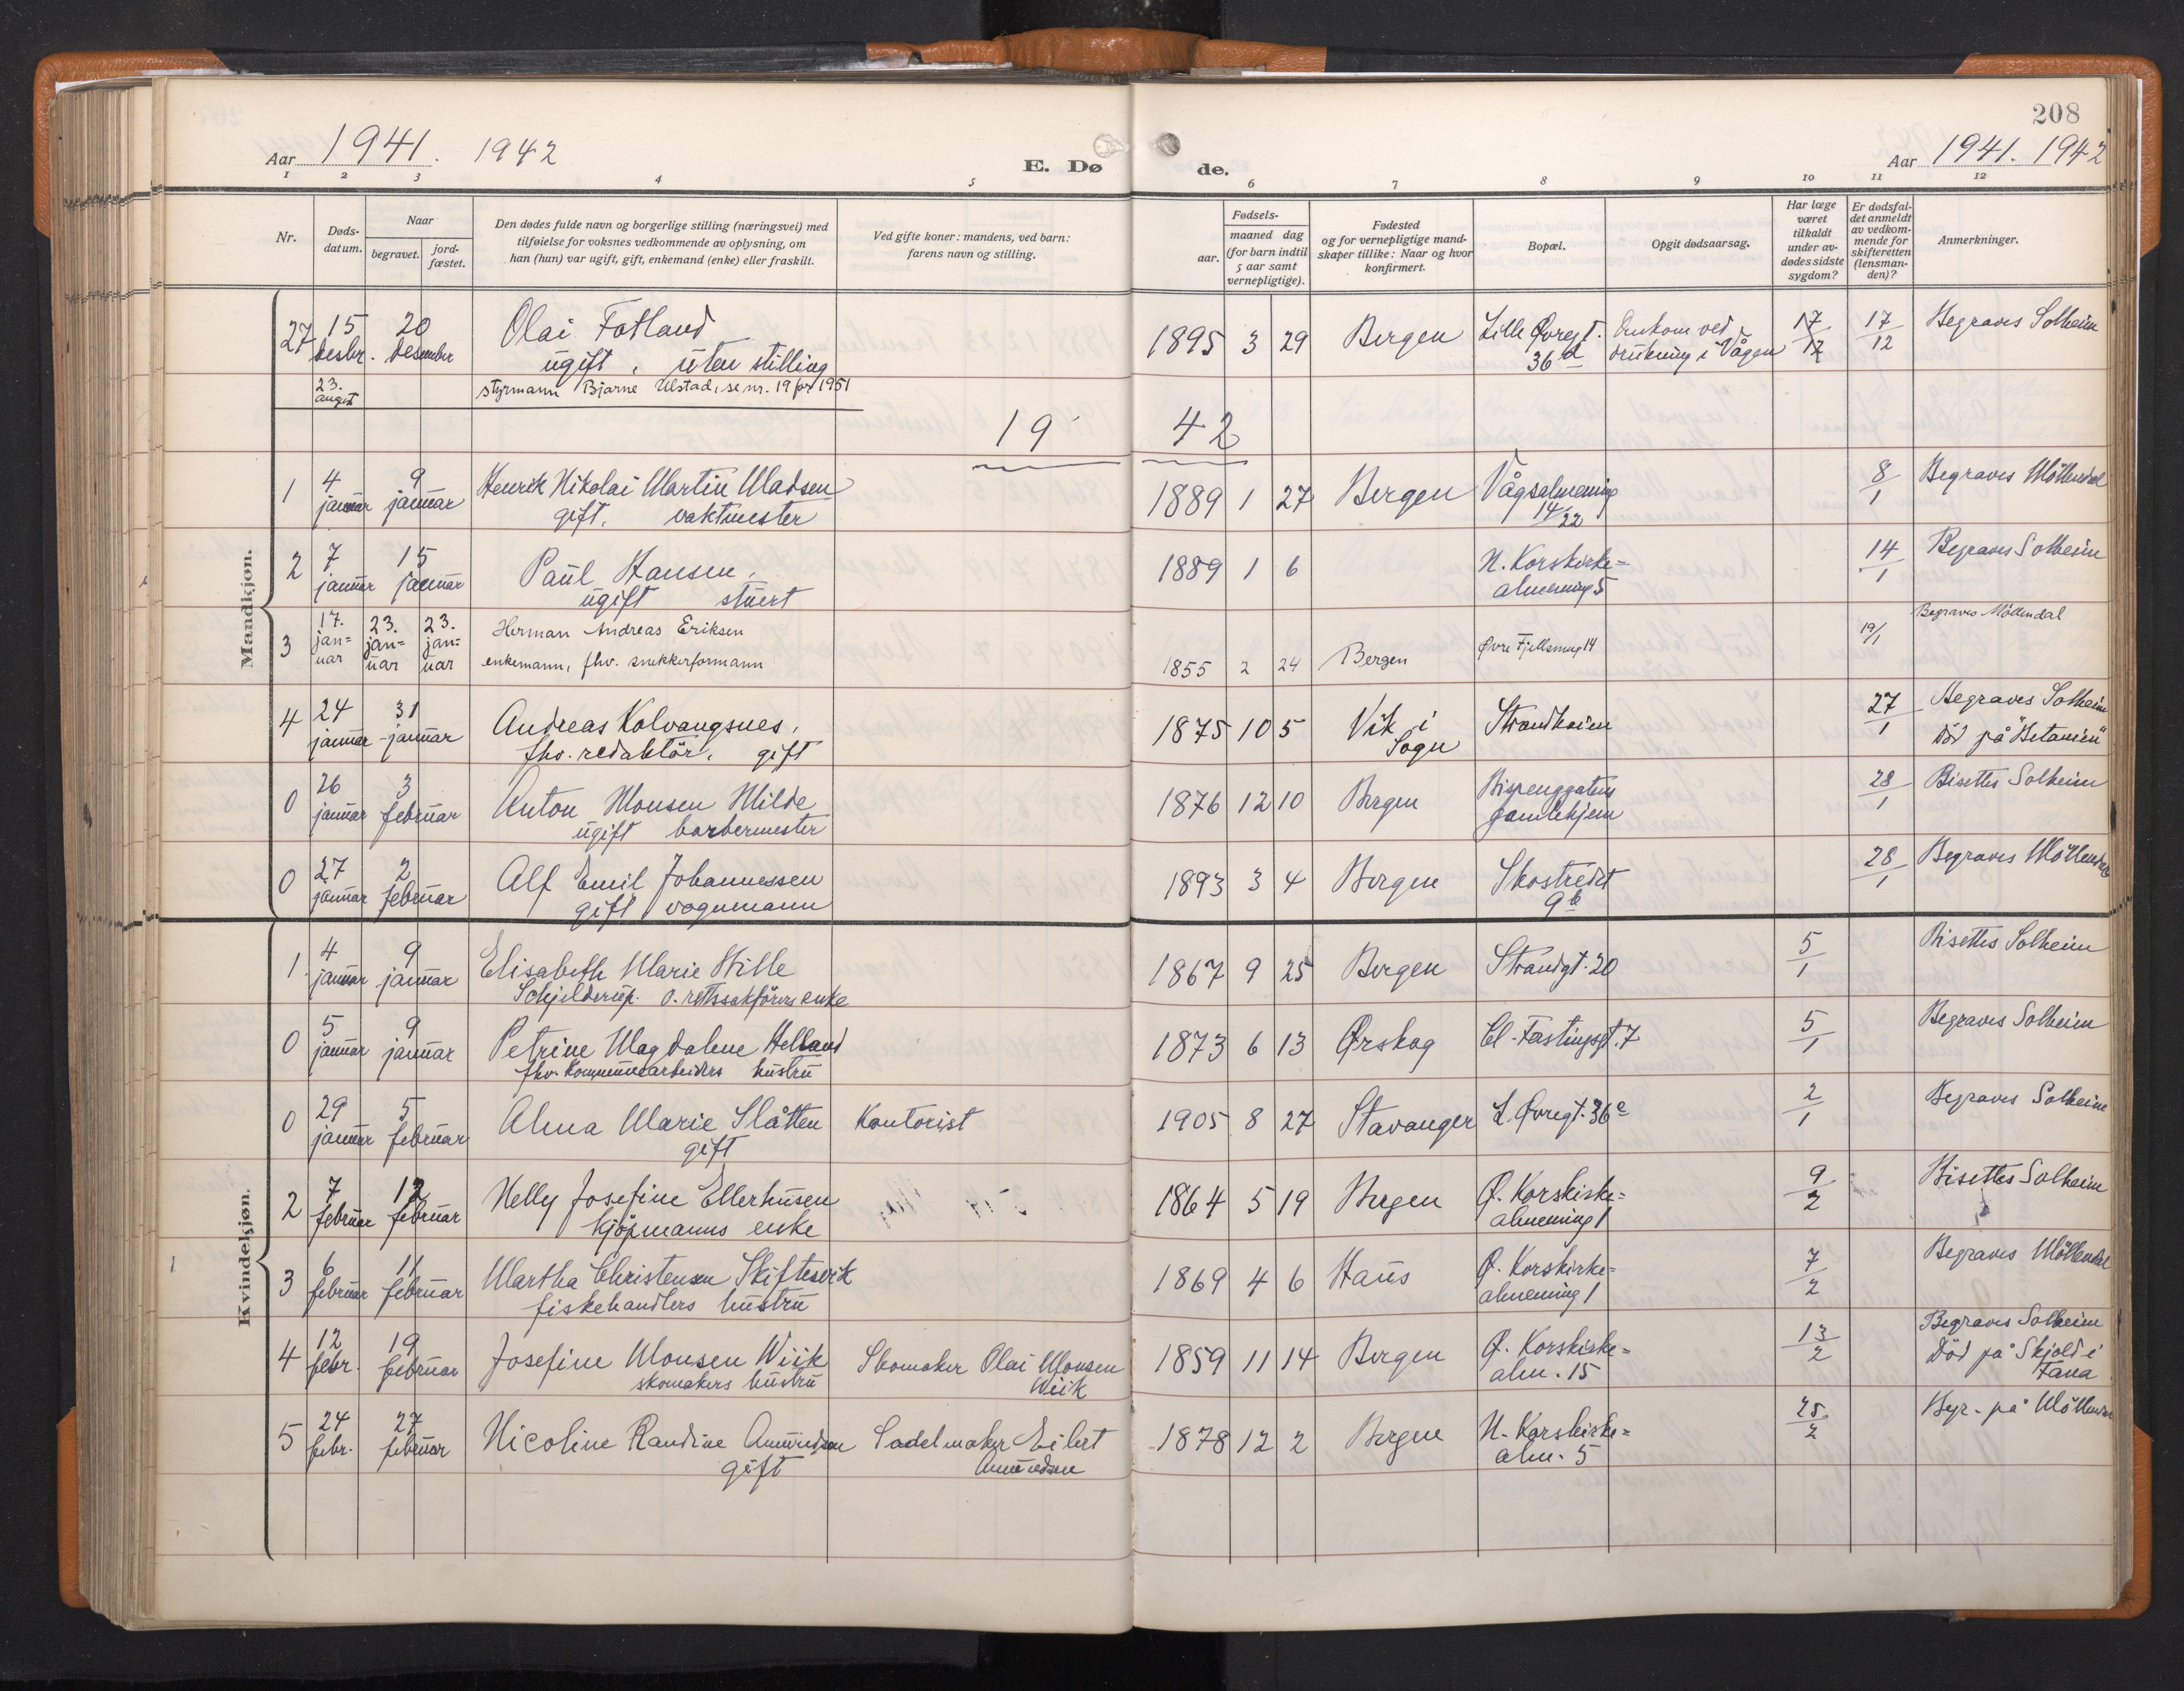 208
Aar 1941. 1942
E. Dø
de.
Aar 1941. 1942
1 2 3 4 5 6 7 8 9 10 11 12
Nr.
Døds-
datum.
Naar
begravet.
jord-
fæstet.
Den dødes fulde navn og borgerlige stilling (næringsvei) med
tilføielse for voksnes vedkommende av oplysning, om
han (hun) var ugift, gift, enkemand (enke) eller fraskilt.
Ved gifte koner: mandens, ved barn:
farens navn og stilling.
Fødsels-
aar.
maaned dag
(for barn indtil
5 aar samt
vernepligtige).
Fødested
og for vernepligtige mand-
skaper tillike: Naar og hvor
konfirmert.
Bopæl.
Opgit dødsaarsag.
Har læge
været
tilkaldt
under av-
dødes sidste
sygdom?
Er dødsfal-
det anmeldt
av vedkom-
mende for
skifteretten
(lensman-
den)?
Anmerkninger.
Mandkjøn.
27 15 20 Olai Fotland 1895 3 29 Bergen Lille Øvregt. Omkom ved 17/12 17/12 Begraves Solheim
desbr. desember ugift, uten stilling 36d drukning i Vågen
23. august styrmann Bjarne Ulstad, se nr. 19 for 1951
19 42
1 4 9 Henrik Nikolai Martin Madsen 1889 1 27 Bergen Vågsalmening 8/1 Begraves Möllendal
januar januar gift. vaktmester 14/22
2 7 15 Paul Hansen, 1889 1 6 N. Korskirke= 14/1 Begraves Solheim
januar januar ugift stuert almening 5
3 17. 23. 23. Herman Andreas Eriksen Øvre Fjellsmug 14 19/1 Begraves Möllendal
jan= jan= jan=
uar uar uar enkemann, fhv. snekkerformann 1855 2 24 Bergen
4 24 31 Andreas Kolvangsnes, 1875 10 5 Vik i Strandheim 27/1 Begraves Solheim
januar januar fhv. redaktör, gift Sogn Död på "Betanien"
0 26 3 Anton Monsen Milde 1876 12 10 Bergen Bispenggatens 28/1 Bisettes Solheim
januar februar ugift barbermester gamlehjem
0 27 2 Alf Emil Johannessen 1893 3 4 Bergen Skostredet 28/1 Begraves Möllendal
januar februar gift vognmann 9b
Kvindekjøn.
1 4 9 Elisabeth Marie Hille 1867 9 25 Bergen Strandgt. 20 5/1 Bisettes Solheim
januar januar Schjelderup. o. rettssakförers enke
0 5 9 Petrine Magdalene Helland 1873 6 13 Ørskog Cl. Fastingsgt. 7 5/1 Begraves Solheim
januar januar fhv. Kommunearbeiders hustru
0 29 5 Alma Marie Slåtten Kontorist 1905 8 27 Stavanger L. Øvregt. 36e 2/1 Begraves Solheim
januar februar gift
2 7 12 Nelly Josefine Ellerhusen 1864 5 19 Bergen Ø. Korskirke= 9/2 Bisettes Solheim
februar februar kjöpmanns enke almening 1
3 6 11 Martha Christensen Skiftesvik 1869 4 6 Haus Ø. Korskirke= 7/2 Begraves Möllendal
februar februar fiskehandlers hustru almening 1
4 12 19 Josefine Monsen Wiik Skomaker Olai Monsen 1859 11 14 Bergen Ø. Korskirke= 13/2 Begraves Solheim
febr. februar skomakers hustru Wiik alm. 15 Död på Skjold i
Fana
5 24 27 Nicoline Randine Amundsen Sadelmaker Eilert 1878 12 2 Bergen N. Korskirke= 25/2 Begr. på Möllendal
febr. februar gift Amundsen alm. 5